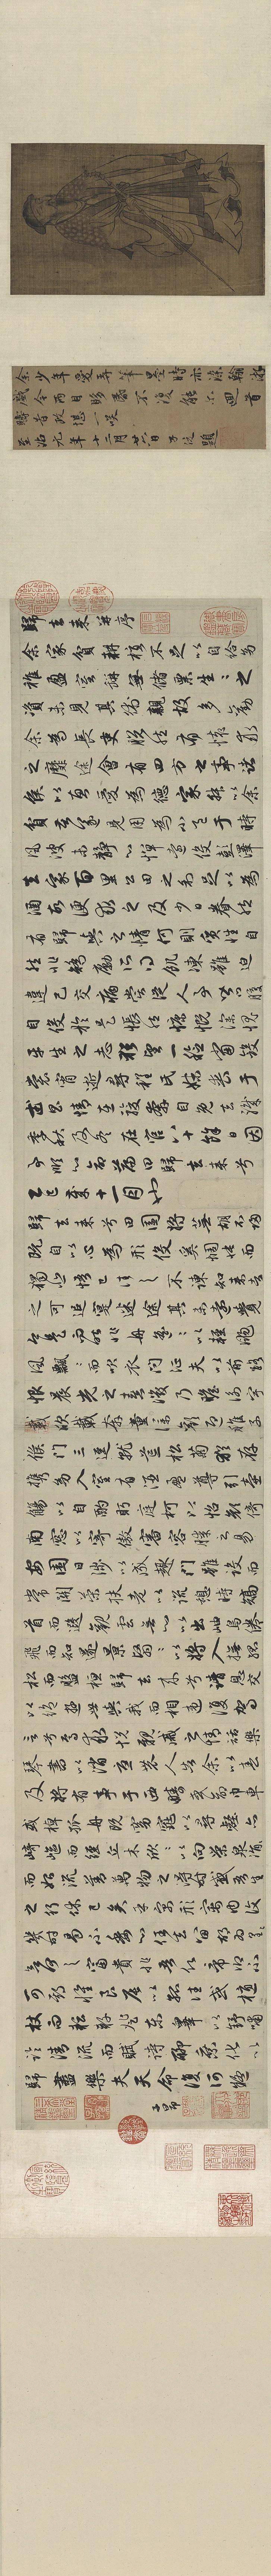 余少年愛弄筆墨時亦染翰游
戲今兩目昏不復能爾回首
疇昔殊堪一笑
至治元年十二月廿六日 題
歸去來并序
余家貧耕植不足以自給幼
稚盈室缾無儲粟生〻之
資未見其術親故多勸
余為長吏脫然有懷求
之靡途會有四方之事諸
侯以惠愛為德家叔以余
貧苦遂見用為小邑于時
風波未靜心憚遠役彭澤
去家百里公田之利足以為
酒故便求之及少日眷然
有歸與之情何則質性自
然非矯勵所得飢凍雖迫
違己交病嘗從人事皆口腹
自役於是悵然慷慨深愧
平生之志猶望一稔當斂
裳宵逝尋程氏妹喪于
武昌情在駿奔自免去職
季秋及冬在官八十餘日因
事順心命篇曰歸去來兮
乙巳歲十一月也
歸去來兮田園將蕪胡不歸
既自以心為形役奚惆悵而
獨悲悟已往之不諫知來者
之可追寔迷途其未遠覺
今是而昨非舟遙〻以輕颺
風飄〻而吹衣問征夫以前路
恨晨光之熹微乃瞻衡宇
載欣載奔童僕歡迎稚子
候門三逕就荒松菊猶存
攜幼入室有酒盈尊引壺
觴以自酌眄庭柯以怡顏倚
南窗以寄傲審容膝之易
安園日涉以成趣門雖設而
常關策扶老以流憩時矯
首而遐觀雲無心以出岫鳥倦
飛而知還景翳〻以將入撫孤
松而盤桓歸去來兮請息交
以絕遊世與我而相遺復駕
言兮焉求悅親戚之情話樂
琴書以消憂農人告余以春
及將有事于西疇或命巾車
或棹孤舟既窈窕以尋壑亦
崎嶇而經丘木欣〻以向榮泉涓〻
而始流善萬物之得時感吾生
之行休已矣乎寓形宇內復
幾時曷不委心任去留胡為
遑〻兮欲何之富貴非吾願帝鄉不
可期懷良辰以孤往或植
杖而耘耔登東皋以舒嘯
臨清流而賦詩聊乘化以
歸盡樂夫天命復何疑
子昂